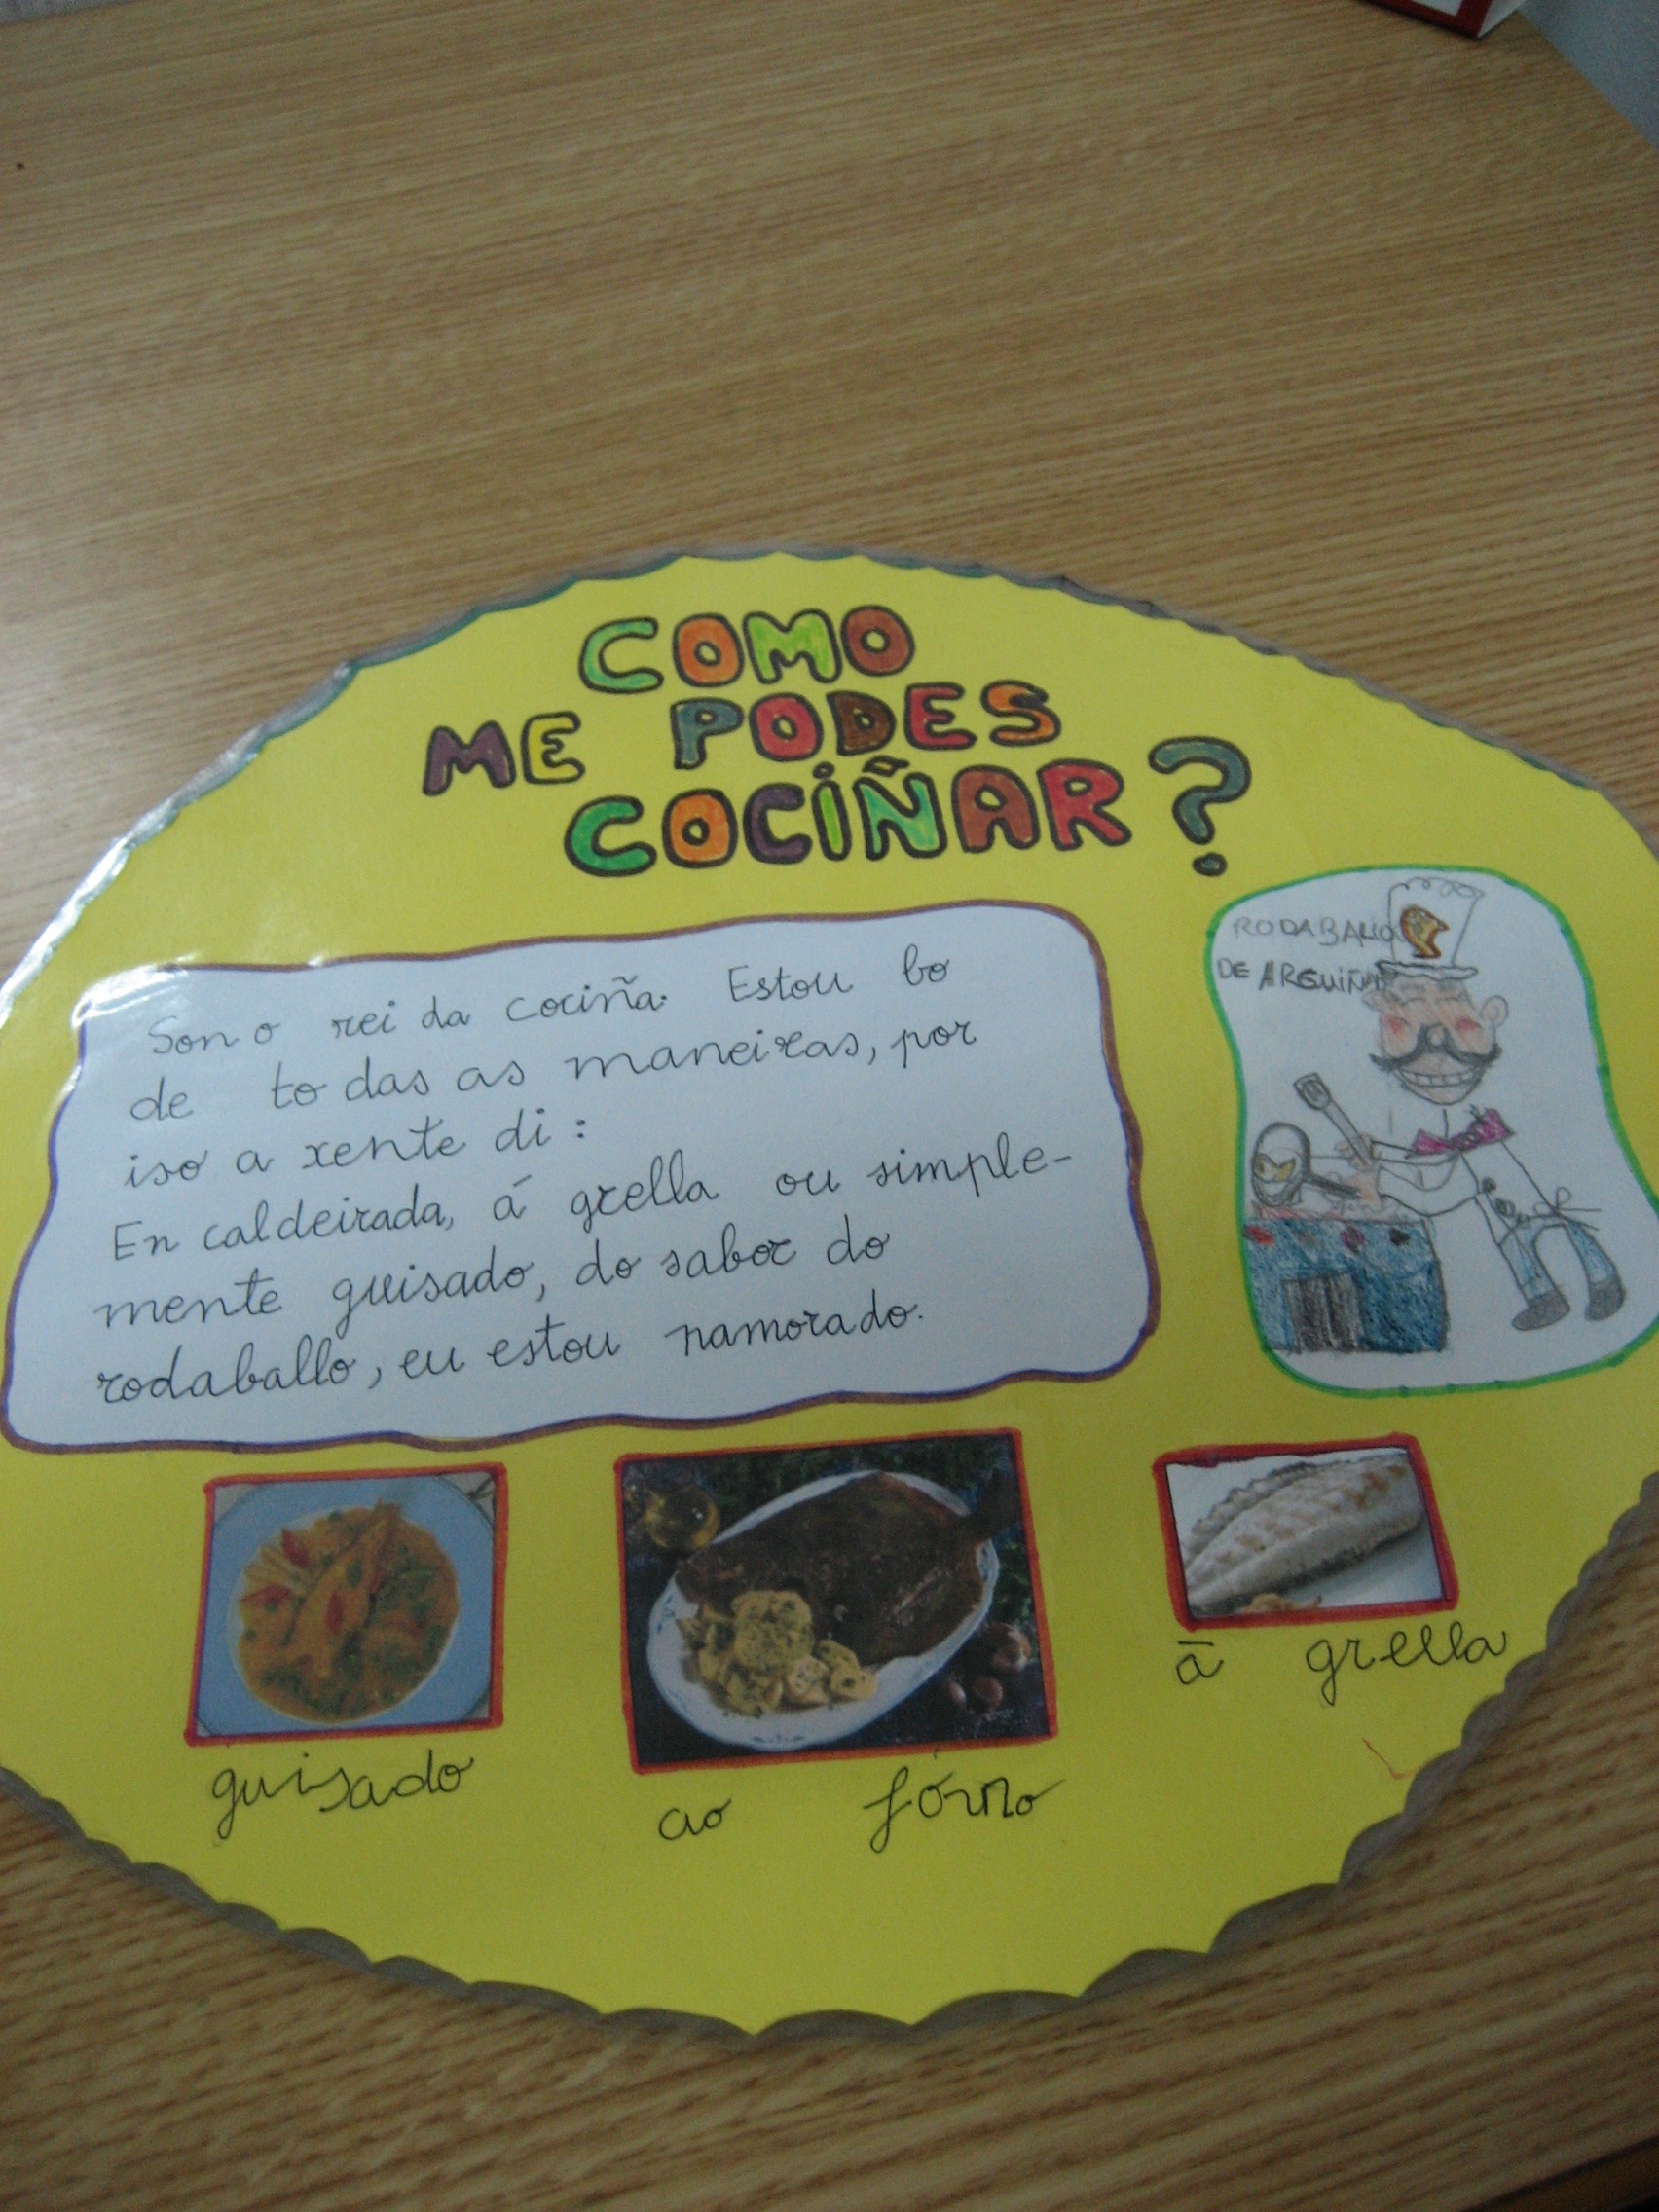 COMO
ME PODES
COCIÑAR?
Son o rei da cociña. Estou bo
de todas as maneiras, por
iso a xente di:
En caldeirada, á grella ou simple-
mente guisado, do sabor do
rodaballo, eu estou namorado.
RODABALLO
DE ARGUIÑANO
guisado
ao fórno
á grella